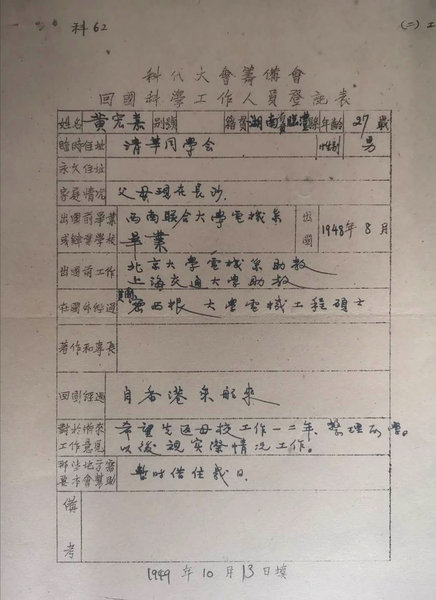 科62
(二)工
科代大會籌備會
回國科學工作人員登記表
姓名 黃宏嘉 別號 籍貫 湖南 臨澧縣 年齡 27 歲
臨時住址 清華同學會 性別 男
永久住址
家庭情況 父母現在長沙.
出國前畢業或肄業學校 西南聯合大學電機系畢業 出國 1948年8月
出國前工作 北京大學電機系助教
上海交通大學助教
在國外經過 美國密西根大學電機工程碩士
著作和專長
回國經過 自香港乘船來
對於將來工作意見 希望先返母校工作一二年,整理所學。
以後視實際情況工作。
那些地方需要本會幫助 暫時借住幾日.
備考
1949年10月13日填